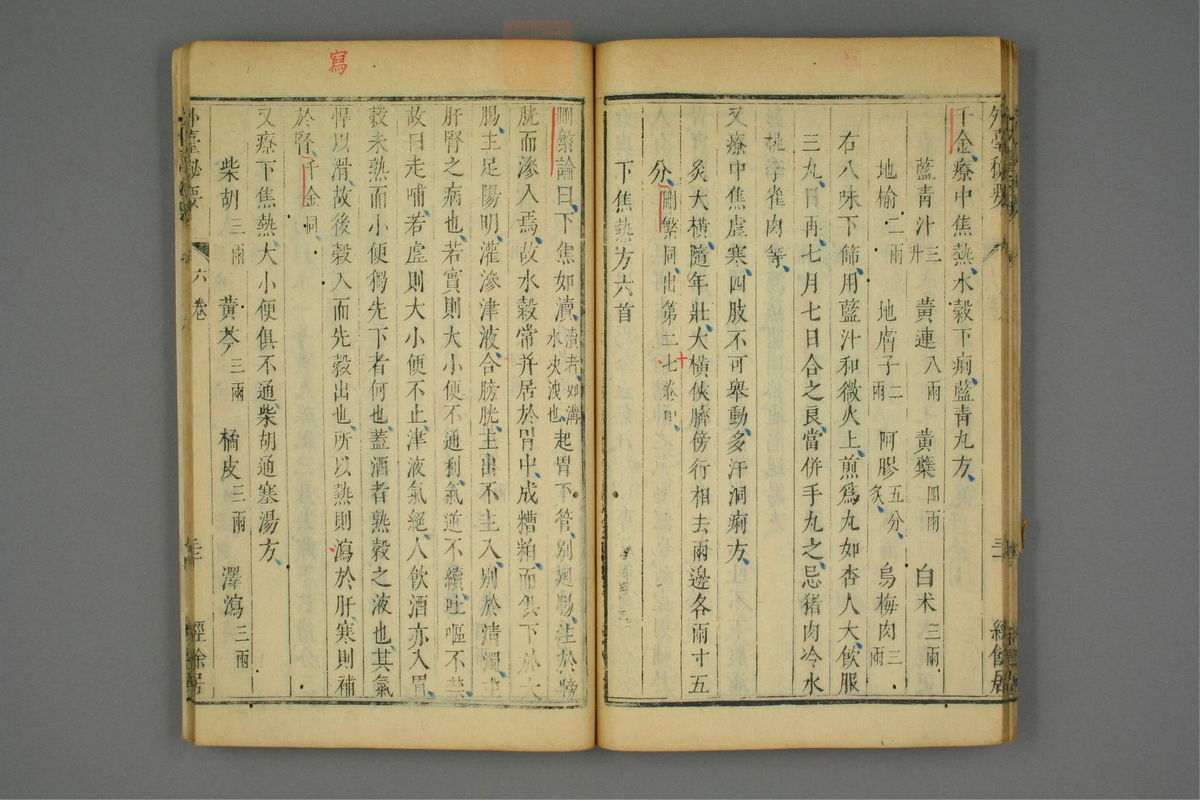 千金療中焦熱水穀下痢藍青丸方
藍青汁三升 黃連八兩 黃蘗四兩 白朮三兩
地榆二兩 地膚子二兩 阿膠五分炙 烏梅肉三兩
右八味下篩用藍汁和微火上煎爲丸如杏人大飲服
三丸日再七月七日合之良當併手丸之忌猪肉冷水
桃李雀肉等
又療中焦虛寒四肢不可舉動多汗洞痢方
灸大橫隨年壯大橫俠臍傍行相去兩邊各兩寸五
分刪繁同出第二七卷中
下焦熱方六首
刪繁論曰下焦如瀆瀆者如溝水決洩也起胃下管別廻腸注於膀
胱而滲入焉故水穀常并居於胃中成糟粕而俱下於大
腸主足陽明灌滲津液合膀胱主出不主入別於清濁主
肝腎之病也若實則大小便不通利氣逆不續吐嘔不禁
故曰走哺若虛則大小便不止津液氣絕人飲酒亦入胃
穀未熟而小便獨先下者何也蓋酒者熟穀之液也其氣
悍以滑故後穀入而先穀出也所以熱則瀉於肝寒則補
於腎千金同
又療下焦熱大小便俱不通柴胡通塞湯方
柴胡三兩 黃芩三兩 橘皮三兩 澤瀉三兩
外臺秘要 六卷 經餘居
寫